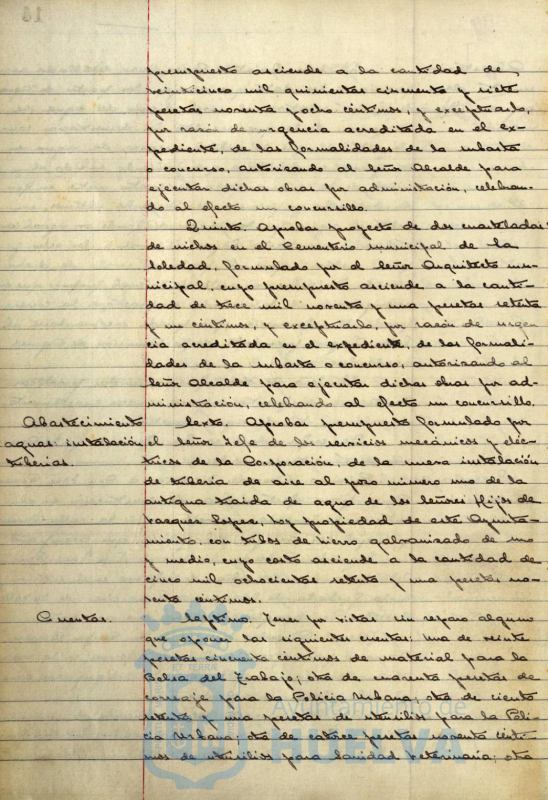 presupuesto asciende a la cantidad de
veinticinco mil quinientas cincuenta y siete
pesetas noventa y ocho céntimos, y exceptuarlo,
por razón de urgencia acreditada en el ex-
pediente, de las formalidades de la subasta
o concurso, autorizando al Señor Alcalde para
ejecutar dichas obras por administración, celebran-
do al efecto un concursillo.
Quinto. Aprobar proyecto de dos cuarteladas
de nichos en el Cementerio municipal de la
Soledad, formulado por el Señor Arquitecto mu-
nicipal, cuyo presupuesto asciende a la canti-
dad de trece mil noventa y una pesetas setenta
y un céntimos, y exceptuarlo, por razón de urgen-
cia acreditada en el expediente, de las formali-
dades de la subasta o concurso, autorizando al
Señor Alcalde para ejecutar dichas obras por ad-
ministración, celebrando al efecto un concursillo.
Abastecimiento
aguas: instalación
tuberías.
Sexto. Aprobar presupuesto formulado por
el Señor Jefe de los servicios mecánicos y eléc-
tricos de la Corporación, de la nueva instalación
de tubería de aire al pozo número uno de la
antigua traída de agua de los Señores Hijos de
Vazquez Lopez, hoy propiedad de este Ayunta-
miento, con tubos de hierro galvanizado de uno
y medio, cuyo costo asciende a la cantidad de
cinco mil ochocientas setenta y una pesetas no-
venta céntimos.
Cuentas.
Septimo. Tener por vistas sin reparo alguno
que oponer las siguientes cuentas: una de veinte
pesetas cincuenta céntimos de material para la
Bolsa del Trabajo; otra de cuarenta pesetas de
correaje para la Policia Urbana; otra de ciento
setenta y una pesetas de utensilios para la Poli-
cia Urbana; otra de catorce pesetas noventa cénti-
mos de utensilios para Sanidad Veterinaria; otra
Ayuntamiento de
HUELVA